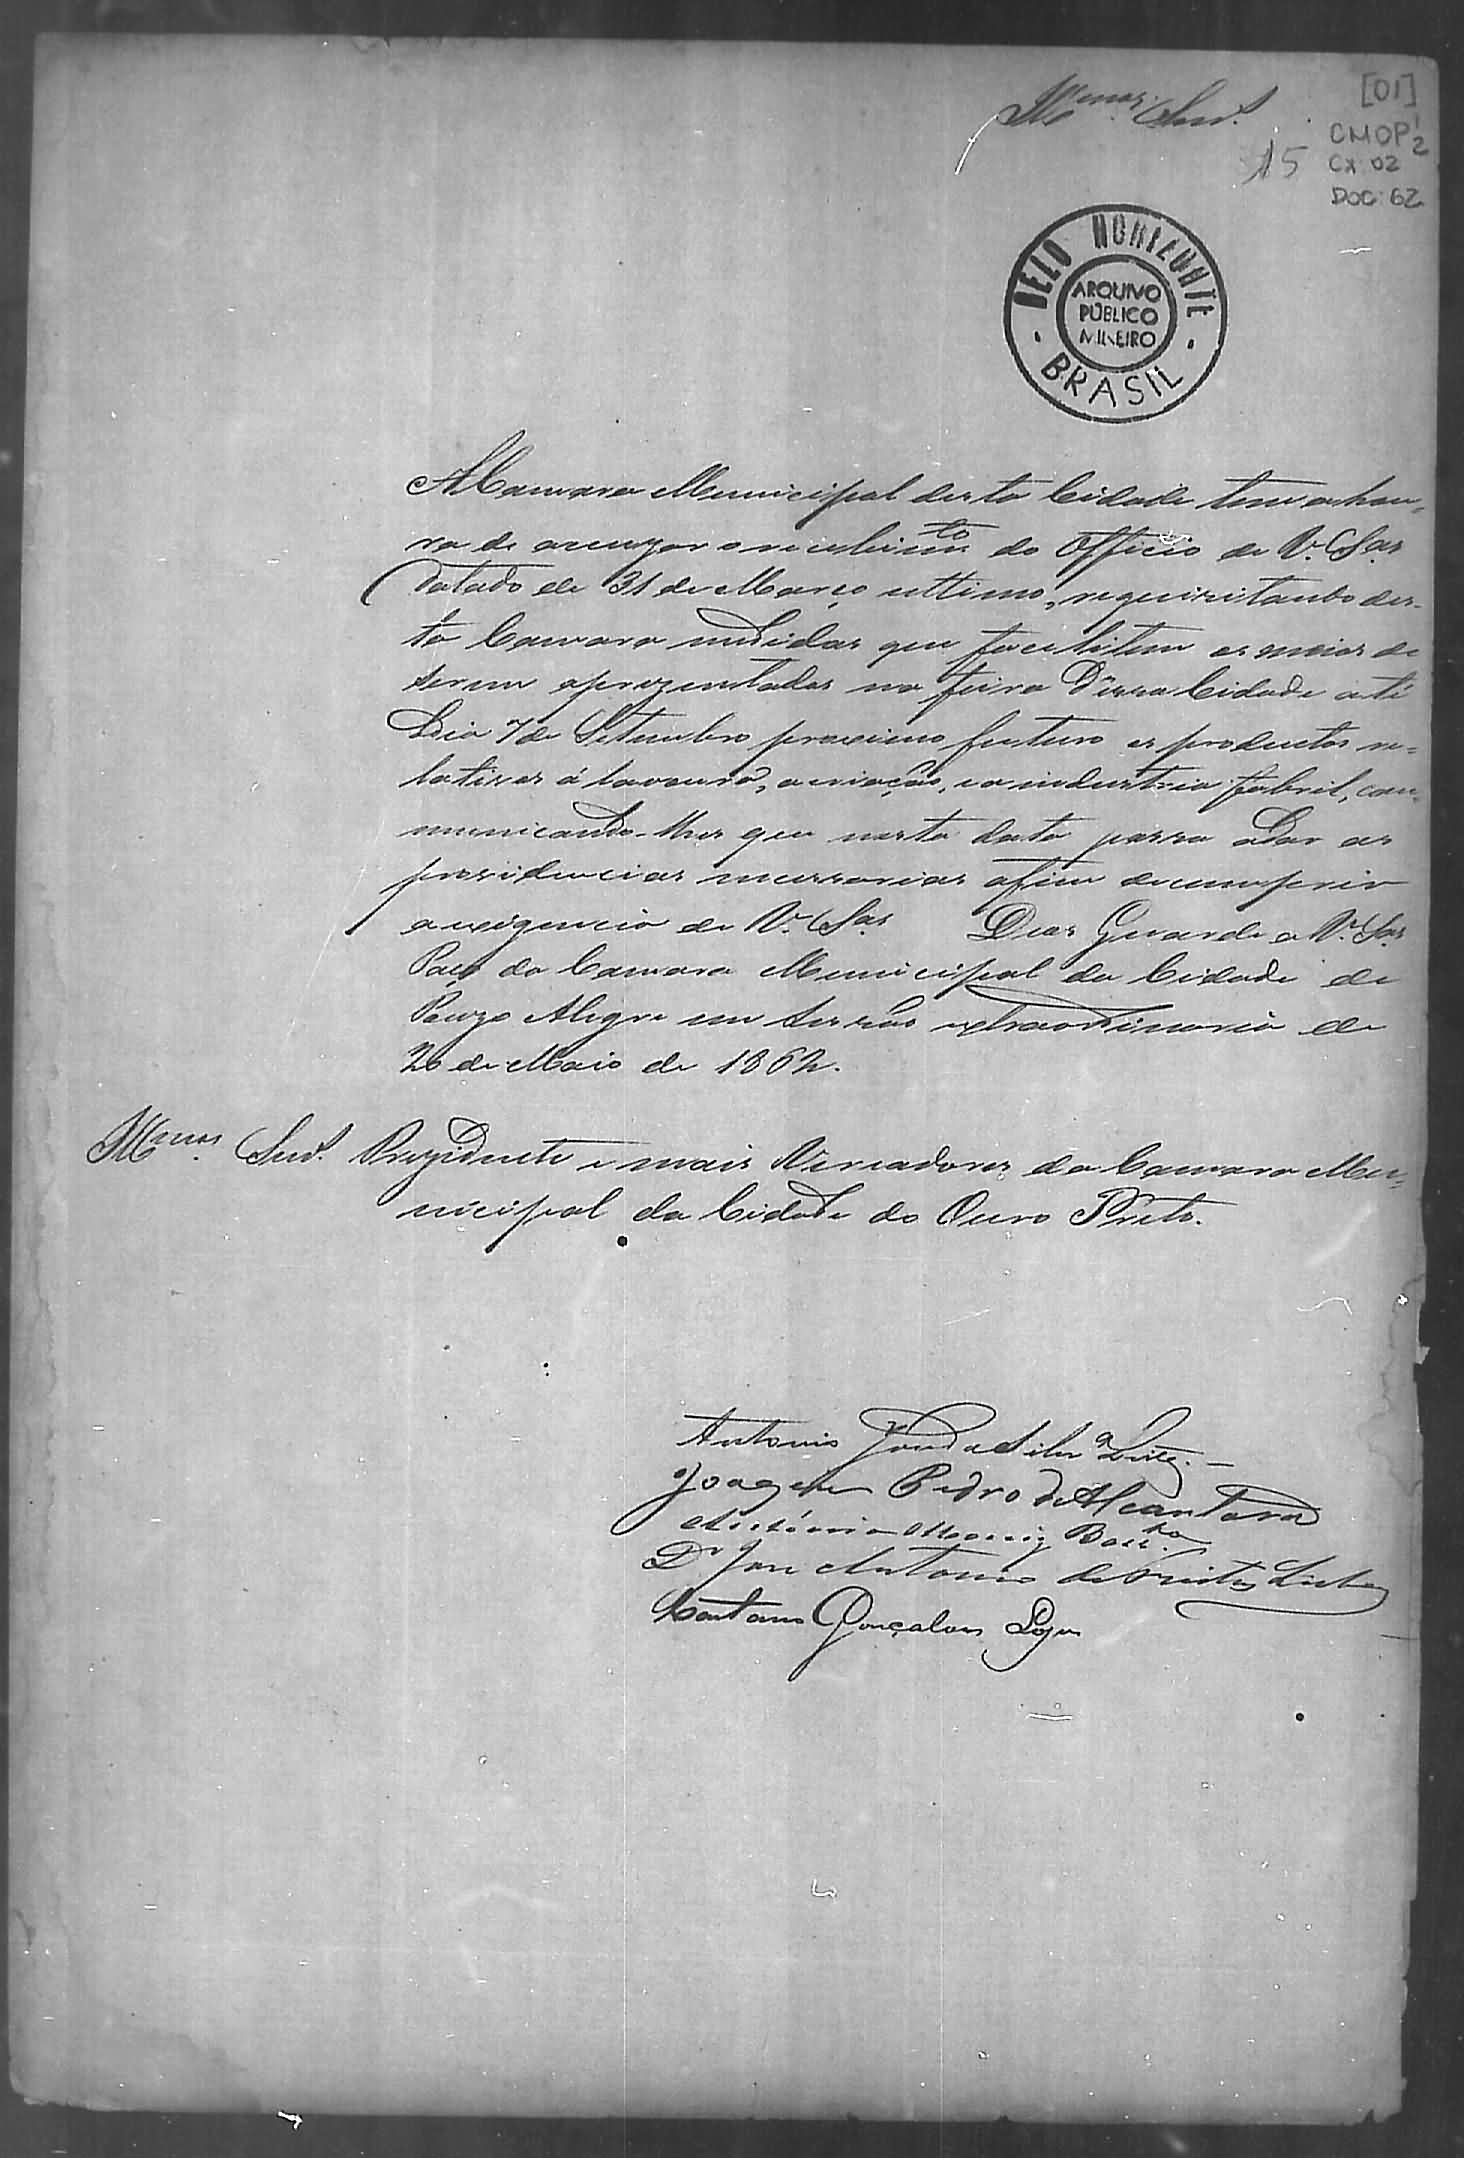 Illmos. Snrs.
[01]
CMOP 1/2
15
CX: 02
DOC: 62
BELO HORIZONTE
ARQUIVO
PÚBLICO
MINEIRO
BRASIL
A Camara Municipal desta Cidade tem a hon-
ra de accuzar o recebimto do Officio de V.as S.as
datado de 31 de Março ultimo, requizitando des-
ta Camara medidas que facilitem os meios de
serem aprezentados na feira d'essa Cidade até
dia 7 de Setembro proximo futuro os productos re-
lativos á lavoura, a criação, e a industria fabril, com-
municando-lhes que nesta data passa a dar as
providencias necessarias afim de cumprir
a exigencia de V.as S.as Deos Guarde a V.as S.as
Paço da Camara Municipal da Cidade de
Pouzo Alegre em sessão extraordinaria de
20 de Maio de 1862.
Illmos. Snrs. Prezidente e mais Vereadores da Camara Mu-
nicipal da Cidade do Ouro Preto.
Antonio José da Silva
Joaquim Pedro de Alcantara
Antonio
Dr José Antonio de Freitas Lisboa
Caetano Gonçalves Lopes